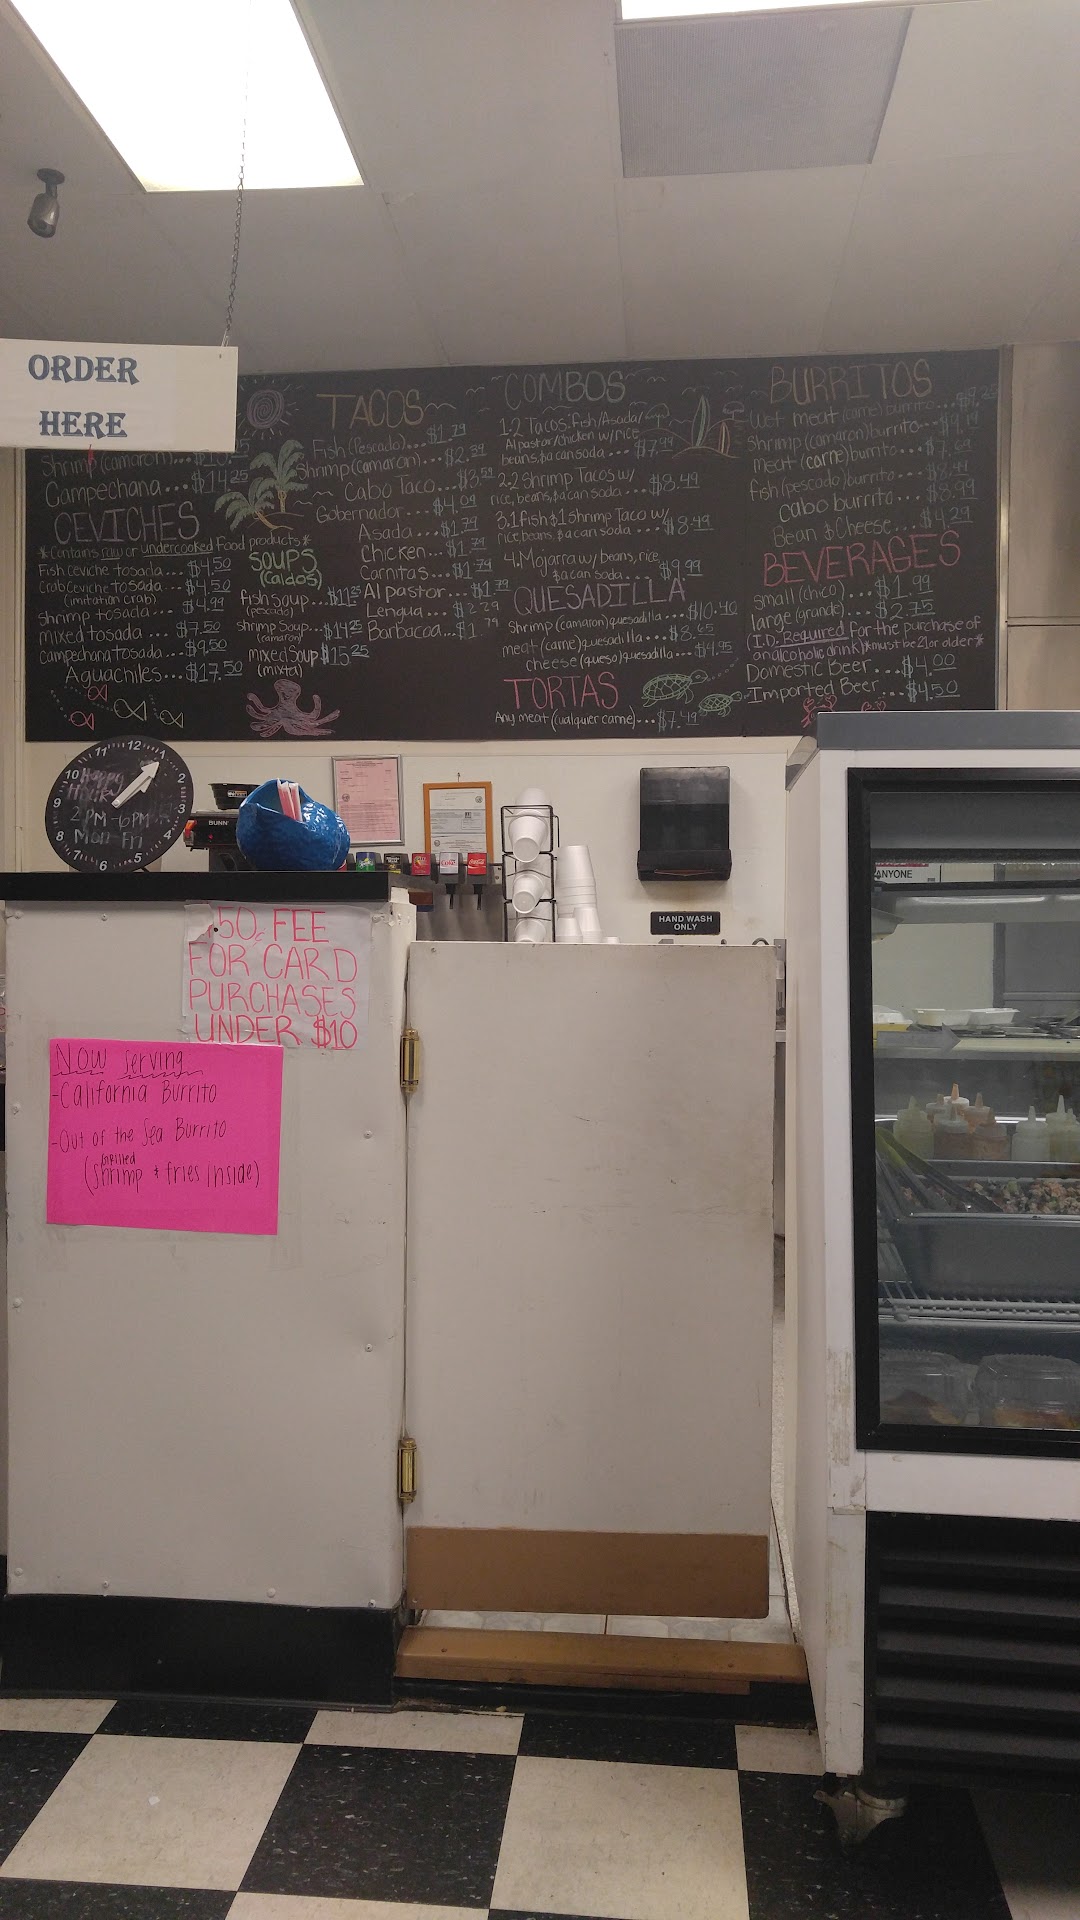 ORDER
HERE
Shrimp (camaron)
Campechana... $14.25
CEVICHES
*Contains raw or undercooked food products*
Fish ceviche tosada.... $4.50
Crab ceviche tosada... $4.50
(imitation crab)
shrimp tosada.... $4.99
mixed tosada.... $7.50
campechana tosada... $9.50
Aguachiles... $17.50
SOUPS
(caldos)
fish soup... $11.25
(pescado)
shrimp soup... $14.25
(camaron)
mixed soup $15.25
(mixta)
TACOS
Fish (Pescado)... $1.79
Shrimp (camaron)... $2.39
Cabo Taco... $3.59
Gobernador... $4.09
Asada... $1.79
Chicken... $1.79
Carnitas... $1.79
Al pastor... $1.79
Lengua... $2.29
Barbacoa... $1.79
COMBOS
1. 2 Tacos: Fish/Asada/
Al pastor/chicken w/ rice
beans, & a can soda... $7.99
2. 2 Shrimp Tacos w/
rice, beans, & a can soda... $8.49
3. 1 fish & 1 Shrimp Taco w/
rice, beans, & a can soda... $8.49
4. Mojarra w/ beans, rice,
& a can soda... $9.99
QUESADILLA
Shrimp (camaron) quesadilla... $10.40
meat (carne) quesadilla... $8.65
cheese (queso) quesadilla... $4.95
TORTAS
Any meat (cualquier carne)... $7.49
BURRITOS
Wet meat (carne) burrito...
Shrimp (camaron) burrito... $9.19
meat (carne) burrito... $7.69
fish (pescado) burrito... $8.49
Cabo burrito.... $8.99
Bean & Cheese... $4.29
BEVERAGES
small (chico)... $1.99
large (grande)... $2.75
(I.D. Required for the purchase of
an alcoholic drink) *must be 21 or older*
Domestic Beer... $4.00
Imported Beer... $4.50
11 12 1
10 2
9 3
8 4
7 6 5
Happy
2PM-6PM
Mon-Fri
BUNN
Coke
Coca-Cola
HAND WASH
ONLY
ANYONE
50¢ FEE
FOR CARD
PURCHASES
UNDER $10
Now Serving
-California Burrito
-Out of the Sea Burrito
(Grilled shrimp & fries inside)